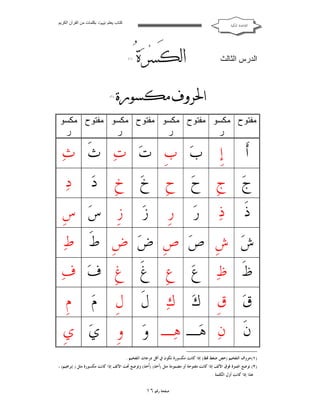 كتاب يعلم تهجيد بكلمات من القرآن الكريم
القاعدة المكية
الدرس الثالث
الكَسْرَةُ
الحروف مكسورة
مفتوح مكسور مفتوح مكسور مفتوح مكسور مفتوح مكسور
أَ إِ بَ بِ تَ تِ ثَ ثِ
جَ جِ حَ حِ خَ خِ دَ دِ
ذَ ذِ رَ رِ زَ زِ سَ سِ
شَ شِ صَ صِ ضَ ضِ طَ طِ
ظَ ظِ عَ عِ غَ غِ فَ فِ
قَ قِ كَ كِ لَ لِ مَ مِ
نَ نِ هَـ هِـ وَ وِ يَ يِ
(١) حروف التفخيم (خص ضغط قظ) إذا كانت مكسورة تكون في أقل درجات التفخيم
(٢) توضع الهمزة فوق الألف إذا كانت مفتوحة أو مضمومة مثل (أَحد، أُحد) وتوضع تحت الألف إذا كانت مكسورة مثل (إبراهيم) ،
هذا إذا كانت أول الكلمة
صفحة رقم ١٦